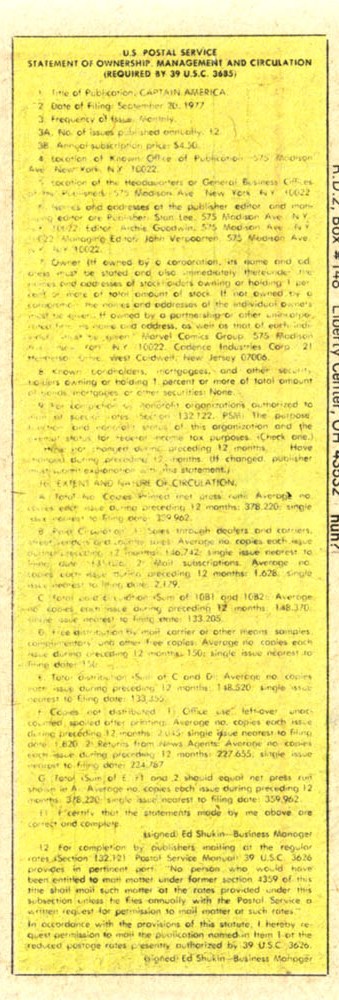 U.S. POSTAL SERVICE
STATEMENT OF OWNERSHIP, MANAGEMENT AND CIRCULATION
(REQUIRED BY 39 U.S.C. 3685)
1. Title of Publication: CAPTAIN AMERICA
2. Date of Filing: September 30, 1977
3. Frequency of Issue: Monthly
3A. No. of issues published annually: 12
3B. Annual subscription price: $4.50
4. Location of Known Office of Publication: 575 Madison
Ave New York, N.Y. 10022
5. Location of the Headquarters or General Business Offices
of the Publishers: 575 Madison Ave New York N.Y. 10022
6. Names and addresses of the publisher editor and man-
aging editor are Publisher: Stan Lee, 575 Madison Ave N.Y.
10022 Editor Archie Goodwin, 575 Madison Ave N.Y.
022 Managing Editor John Verpoorten, 575 Madison Ave,
N.Y. 10022.
7. Owner (If owned by a corporation, its name and ad-
dress must be stated and also immediately thereunder the
names and addresses of stockholders owning or holding 1 per-
cent or more of total amount of stock. If not owned by a
corporation, the names and addresses of the individual owners
must be given. If owned by a partnership or other unincorpo-
rated firm, its name and address, as well as that of each indi-
vidual must be given.) Marvel Comics Group 575 Madison
Ave New York N.Y. 10022. Cadence Industries Corp 21
Henderson Drive, West Caldwell, New Jersey 07006
8. Known bondholders, mortgagees, and other security
holders owning or holding 1 percent or more of total amount
of bonds, mortgages or other securities: None
9. For completion by nonprofit organizations authorized to
mail at special rates (Section 132.122, PSM) The purpose,
function and nonprofit status of this organization and the
exempt status for federal income tax purposes (Check one)
Have not changed during preceding 12 months. Have
changed during preceding 12 months (If changed, publisher
must submit explanation with this statement.)
10. EXTENT AND NATURE OF CIRCULATION.
A. Total No Copies Printed (net press run): Average no.
copies each issue during preceding 12 months: 378,220; single
issue nearest to filing date: 359,962.
B. Paid Circulation 1. Sales through dealers and carriers,
street vendors and counter sales: Average no. copies each issue
during preceding 12 months: 146,742; single issue nearest to
filing date: 2. Mail subscriptions: Average no.
copies each issue during preceding 12 months: 1,628; single
issue nearest to filing date: 2,179.
C. Total paid circulation (Sum of 10B1 and 10B2): Average
no. copies each issue during preceding 12 months: 148,370;
single issue nearest to filing date: 133,205.
D. Free distribution by mail, carrier or other means samples,
complimentary, and other free copies: Average no. copies each
issue during preceding 12 months: 150; single issue nearest to
filing date: 150.
E. Total distribution (Sum of C and D): Average no. copies
each issue during preceding 12 months: 148,520; single issue
nearest to filing date: 133,355.
F. Copies not distributed 1. Office use, left-over, unac-
counted, spoiled after printing: Average no. copies each issue
during preceding 12 months: 2,045; single issue nearest to filing
date: 1,820 2. Returns from News Agents: Average no. copies
each issue during preceding 12 months: 227,655; single issue
nearest to filing date: 224,787
G. Total (Sum of E, F1 and 2 should equal net press run
shown in A): Average no. copies each issue during preceding 12
months: 378,220; single issue nearest to filing date: 359,962.
11. I certify that the statements made by me above are
correct and complete.
(signed) Ed Shukin—Business Manager
12. For completion by publishers mailing at the regular
rates (Section 132.121, Postal Service Manual) 39 U.S.C. 3626
provides in pertinent part: "No person who would have
been entitled to mail matter under former section 4359 of this
title shall mail such matter at the rates provided under this
subsection unless he files annually with the Postal Service a
written request for permission to mail matter at such rates."
In accordance with the provisions of this statute, I hereby re-
quest permission to mail the publication named in Item 1 at the
reduced postage rates presently authorized by 39 U.S.C. 3626.
(signed) Ed Shukin—Business Manager
R.D.2, Box #148 Liberty Center, OH 43532